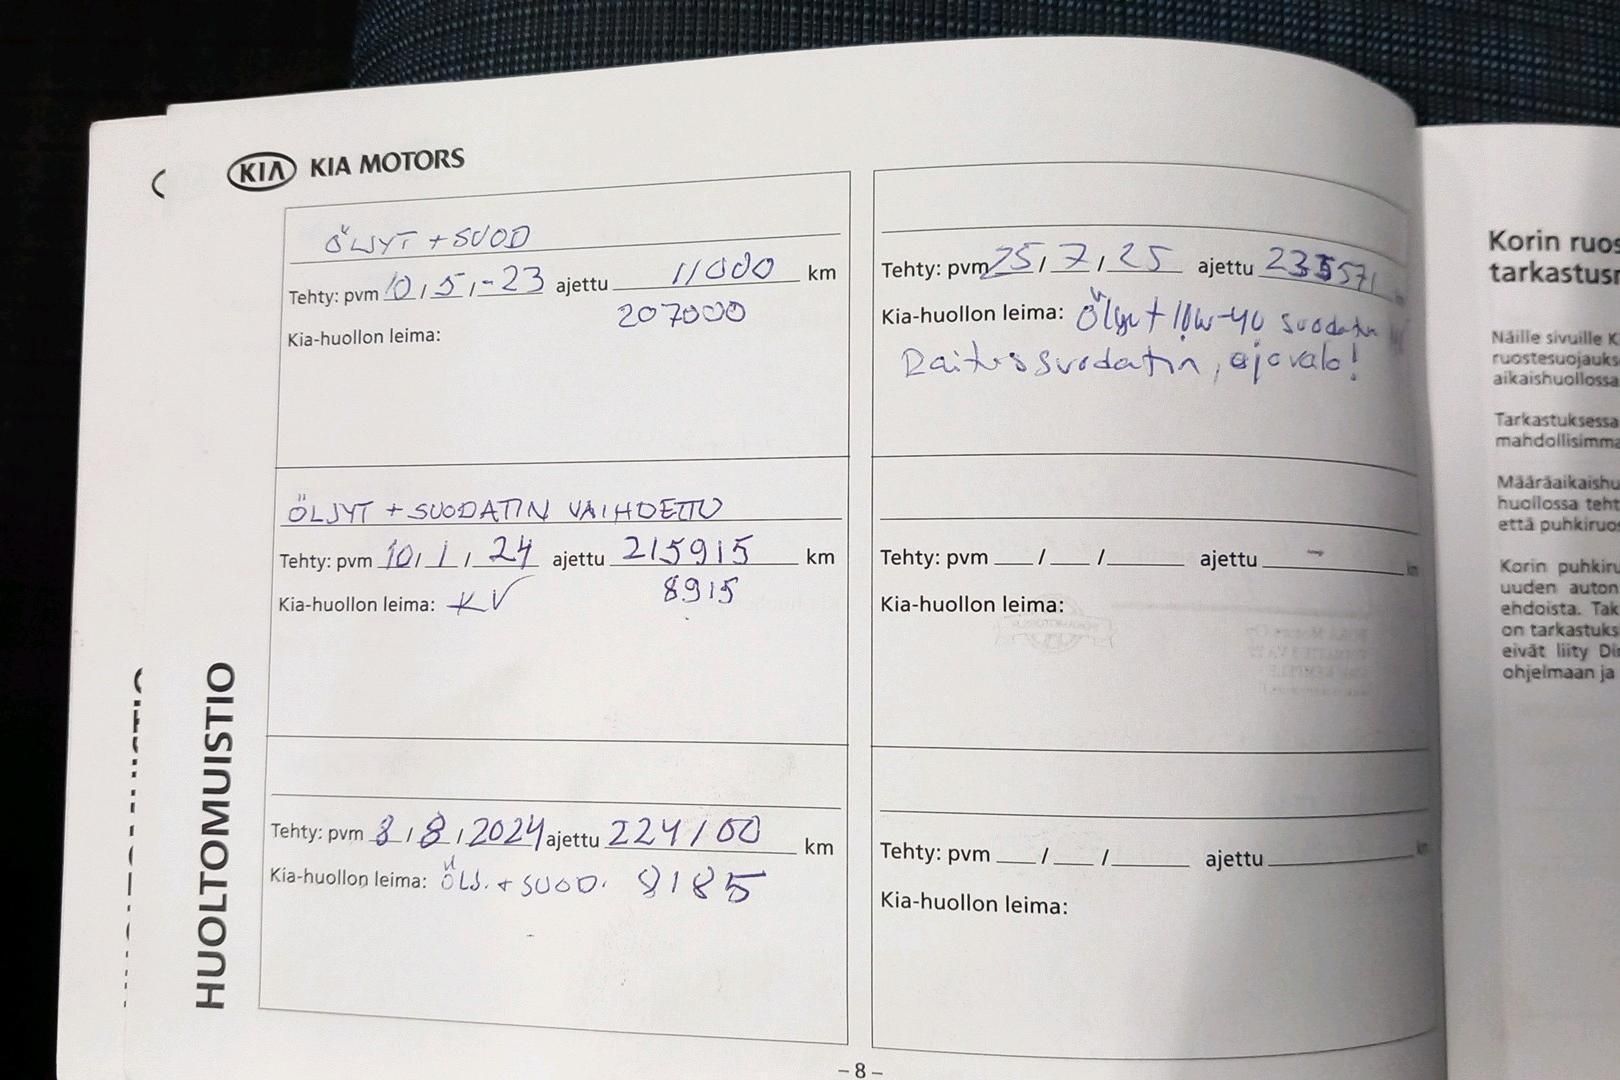 KIA KIA MOTORS
HUOLTOMUISTIO
ÖLJYT + SUOD
Tehty: pvm 10 / 5 / -23 ajettu 11000 km
207000
Kia-huollon leima:
ÖLJYT + SUODATIN VAIHDETTU
Tehty: pvm 10 / 1 / 24 ajettu 215915 km
8915
Kia-huollon leima: KV
Tehty: pvm 8 / 8 / 2024 ajettu 224100 km
Kia-huollon leima: ÖLJ. + SUOD. 8185
Tehty: pvm 25 / 7 / 25 ajettu 235571
Kia-huollon leima: Öljyt 10w-40 suodatin
Raitissuodatin, ajovalo!
Tehty: pvm / / ajettu km
Kia-huollon leima:
Tehty: pvm / / ajettu km
Kia-huollon leima:
- 8 -
Korin ruos
tarkastusr
Näille sivuille K
ruostesuojauks
aikaishuollossa
Tarkastuksessa
mahdollisimma
Määräaikaishu
huollossa teht
että puhkiruos
Korin puhkiru
uuden auton
ehdoista. Tak
on tarkastuks
eivät liity Di
ohjelmaan ja